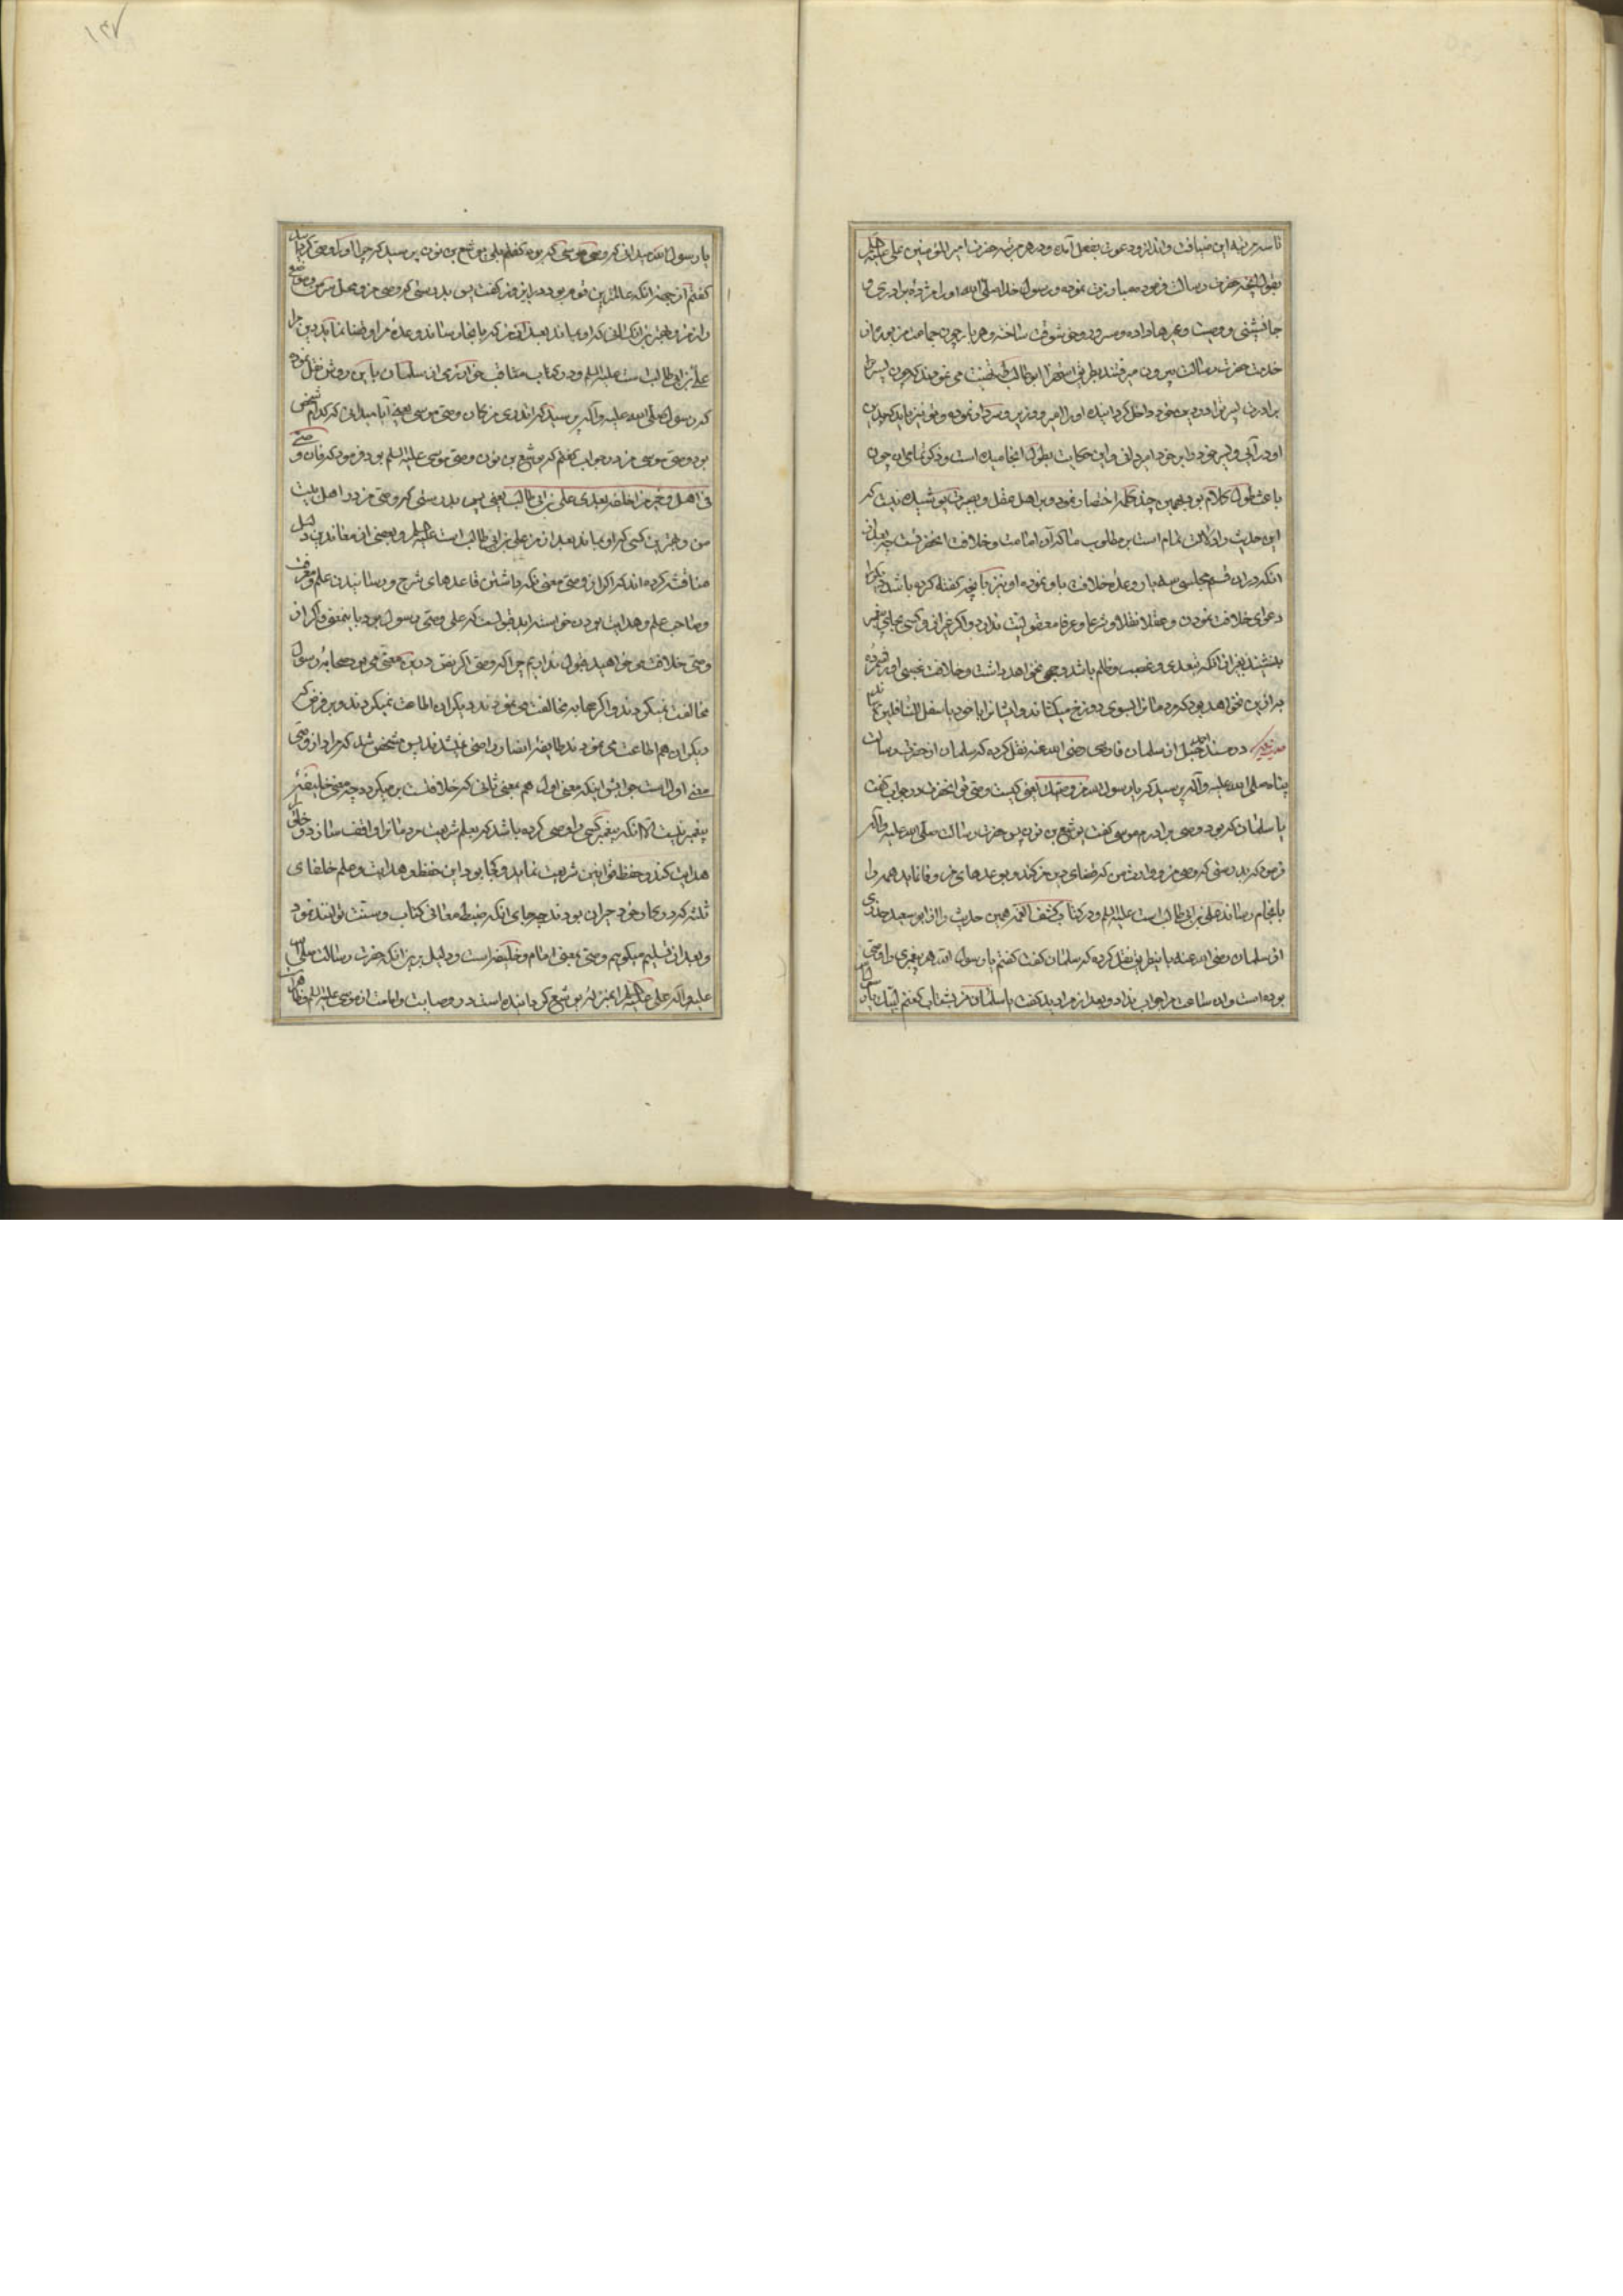 تا سه مرتبه این ضیافت و انذار و دعوت بفعل آمده و در هر مرتبه حضرت امیر المؤمنین علی علیه السلم
بقول آنچه حضرت رسالت فرموده مبادرت نموده و رسول خدا صلی الله او را مژده برادری و
جانشینی و وصیت و غیرها داده و هر بار چون جماعت مزبور از
خدمت حضرت رسالت بیرون میرفتند بطریق استهزا ابو طالب را می نمودند که چون پسر ترا
برادرت بر تو و در دین خود داخل گردانیده او را امیر و وزیر و سردار نموده و تو نیز باید که بدین
او در آیی و پسر خود را بر خود امیر دانی و این حکایت بطول انجامیده است و ذکر تمامی آن چون
باعث طول کلام بود بهمین چند کلمه اختصار نمود و بر اهل عقل و بصیرت پوشیده نیست که
این حدیث را دلالت تمام است بر مطلوب ما که آن امامت و خلافت آنحضرتست چه بعد از
آنکه در این قسم مجلسی سه بار وعده خلافت باو نموده او نیز بآنچه گفته کرده باشد دیگرا
دعوای خلافت نمودن عقلا و نقلا و شرعا و عرفا معقولیت ندارد و اگر غیر از او کسی بجای پیغمبر
بنشیند بغیر از آنکه بتعدی و تعصب و ظلم باشد وجهی نخواهد داشت و خلافت
بر این نخواهد بود که مردمانرا بسوی دوزخ میکشاند و ایشانرا با خود باسفل السافلین
حدیث دیگر در مسند احمد حنبل از سلمان فارسی رضی الله عنه نقل کرده که سلمان از حضرت رسالت
پناه صلی الله علیه و آله پرسید که یا رسول الله من وصیک یعنی کیست وصی تو آنحضرت در جواب گفت
یا سلمان که بود وصی برادرم موسی گفت یوشع بن نون پس حضرت رسالت صلی الله علیه و آله
فرمود که بدرستی که وصی من و وارث من که قضای دین من کند و بوعدهای من وفا نماید همه را
بانجام رساند علی بن ابی طالب است علیه السلم و در کتاب کشف الغمه همین حدیث را از ابو سعید خدری
از سلمان رضی الله عنه باینطریق نقل کرده که سلمان گفت گفتم یا رسول الله هر پیغمبری را وصی
بوده است و آن ساعت مرا جواب نداد و بعد از آن مرا دید گفت یا سلمان من بشتاب گفتم لبیک
یا رسول الله میدانی که وصی موسی که بود گفتم بلی یوشع بن نون پرسید که چرا او را وصی کرد
گفتم از جهة آنکه عالمترین قوم بود در آن روز گفت پس بدرستی که وصی من و محل سر من و موضع
راز من و بهترین کسانی که او بماند بعد از من که بانجاز رساند وعده مرا و قضا نماید دین مرا
علی بن ابی طالب است علیه السلم و در کتاب مناقب خوارزمی از سلمان باین روش نقل نموده
که رسول صلی الله علیه و آله پرسید که آیا میدانی که کدام شخص
بود وصی موسی من در جواب گفتم که یوشع بن نون وصی موسی علیه السلم بود فرمود که فان وصیی
فی اهلی و خیر من اخلفه بعدی علی بن ابی طالب یعنی پس بدرستی که وصی من در اهل بیت
من و بهترین کسی که او بماند بعد از من علی بن ابی طالب است علیه السلم و بعضی از معاندین
مناقشه کرده اند که اگر از وصی معنی نگه داشتن قاعدهای شرع و رسانیدن علم و معرفت
و صاحب علم و هدایت بودن خواسته اید قبولست که علی وصی رسول بود باینمعنی و اگر از
وصی خلافت می خواهید قبول نداریم چرا که وصی اگر نص درین معنی می بود صحابه رسول
مخالفت نمیکردند و اگر صحابه مخالفت می نمودند دیگران اطاعت نمیکردند و بر فرض که
دیگران هم اطاعت می نمودند طایفه انصار راضی نمیشدند پس مشخص شد که مراد از وصی
معنی اول است جوابش اینکه معنی اول هم معنی ثانی که خلافتست بر میگردد چه معنی خلیفه
پیغمبر نیست الا آنکه پیغمبر کسی را وصی کرده باشد که بعلم شریعت مردمانرا واقف سازد و خلق را
هدایت کند و حفظ قوانین شریعت نماید و کجا بود این حفظ و هدایت و علم خلفای
ثلثه که در کار خود حیران بودند چه جای آنکه ضبط معانی کتاب و سنت توانند نمود
و بعد از تسلیم میگویم وصی بمعنی امام و خلیفه است و دلیل بر این آنکه حضرت رسالت صلی الله
علیه و آله علی علیه السلم را بمنزله یوشع گردانیده است در وصایت و امامت از موسی علیه السلم